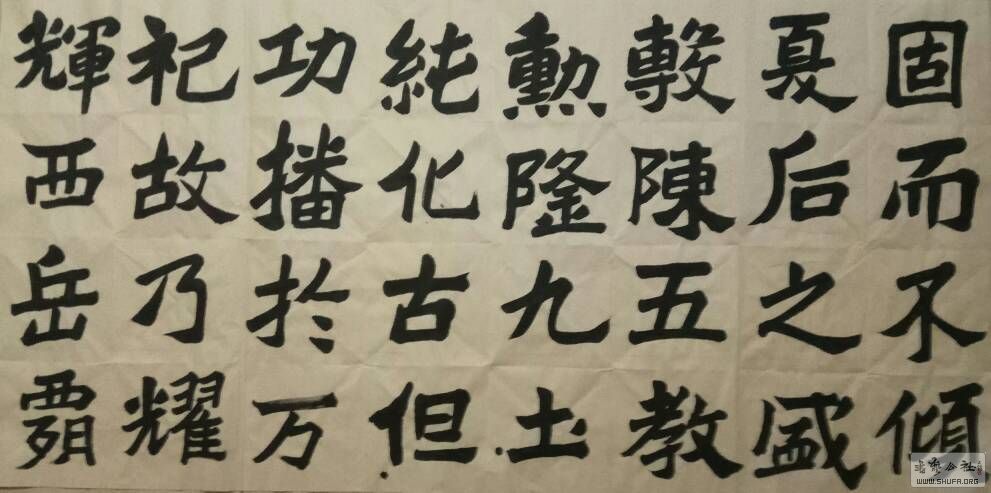 固而不傾
夏后之盛
敷陳五教
勳隆九土
純化古但
功播於万
祀故乃耀
輝西岳
WWW.SHUFA.ORG